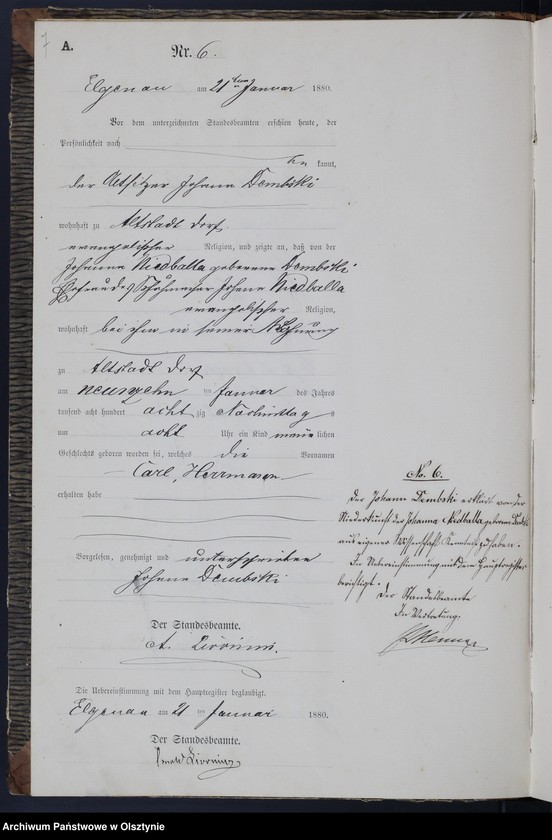 7
A.
Nr. 6.
Elgenau am 21ten Januar 1880.
Vor dem unterzeichneten Standesbeamten erschien heute, der
Persönlichkeit nach
kannt,
der Altsitzer Johann Dembski
wohnhaft zu Altstadt Dorf
evangelischer Religion, und zeigte an, daß von der
Johanna Niedballa geborene Dembski
Johann Niedballa
evangelischer Religion,
wohnhaft bei ihm in seiner Wohnung
zu Altstadt Dorf
am neunzehn ten Januar des Jahres
tausend acht hundert acht zig Nachmittag s
um acht Uhr ein Kind männlichen
Geschlechts geboren worden sei, welches die Vornamen
Carl, Herrmann
erhalten habe
Vorgelesen, genehmigt und unterschrieben
Johann Dembski
Der Standesbeamte.
Die Uebereinstimmung mit dem Hauptregister beglaubigt.
Elgenau am 21 ten Januar 1880.
Der Standesbeamte.
No. 6.
Der Johann Dembski erklärt von der
Niederkunft der Johanna Niedballa geborenen Dembski
aus eigener Wissenschaft Kenntniß zu haben.
In Uebereinstimmung mit dem Hauptregister
berichtigt.
Der Standesbeamte
In Vertretung.
Archiwum Państwowe w Olsztynie